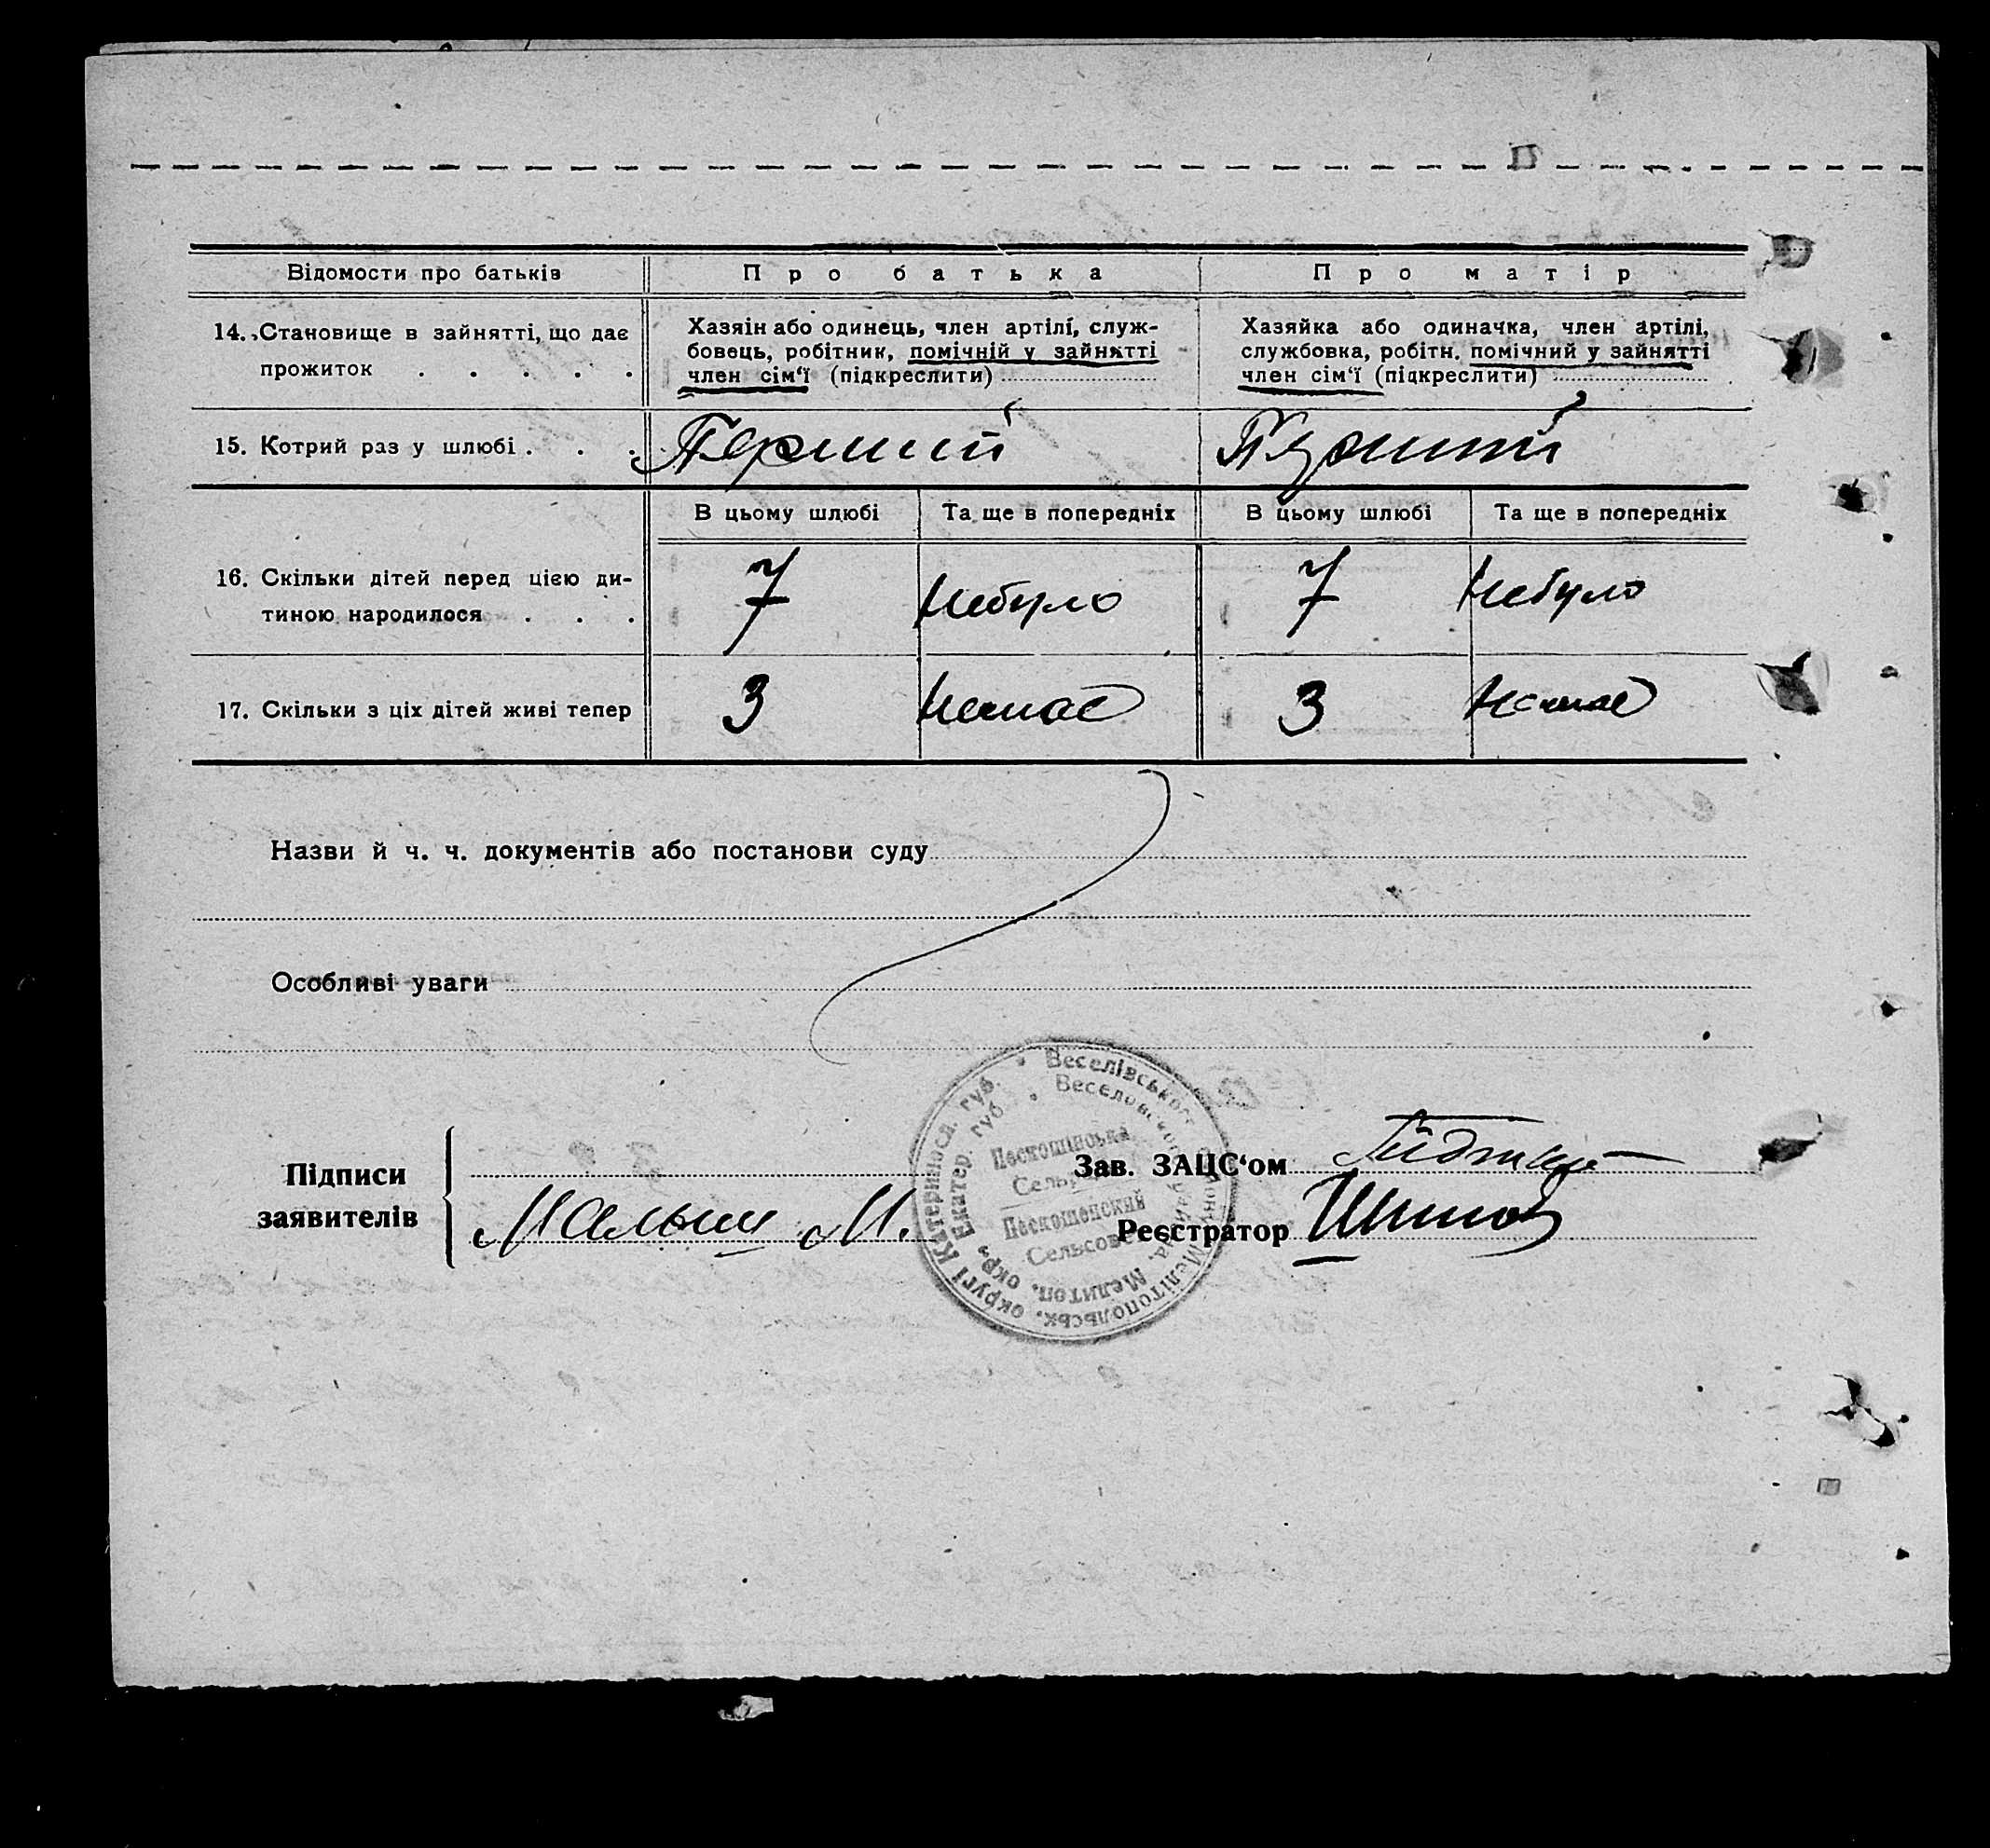 Відомости про батьків
Про батька
Про матір
14. Становище в зайнятті, що дає
прожиток . . . . .
Хазяїн або одинець, член артілі, служ-
бовець, робітник, помічній у зайнятті
член сім'ї (підкреслити)
Хазяйка або одиначка, член артілі,
службовка, робітн. помічний у зайнятті
член сім'ї (підкреслити)
15. Котрий раз у шлюбі . . .
Перший
В цьому шлюбі
Та ще в попередніх
В цьому шлюбі
Та ще в попередніх
16. Скільки дітей перед цією ди-
тиною народилося . . .
7
Небуло
7
Небуло
17. Скільки з ціх дітей живі тепер
3
Немає
3
Немає
Назви й ч. ч. документів або постанови суду
Особливі уваги
Підписи
заявителів
М.
Зав. ЗАЦС'ом
Реєстратор
Веселівського Мелітопольськ. округі Катериносл. губ.
Мелитоп. окр. Екатер. губ.
Сельсовет